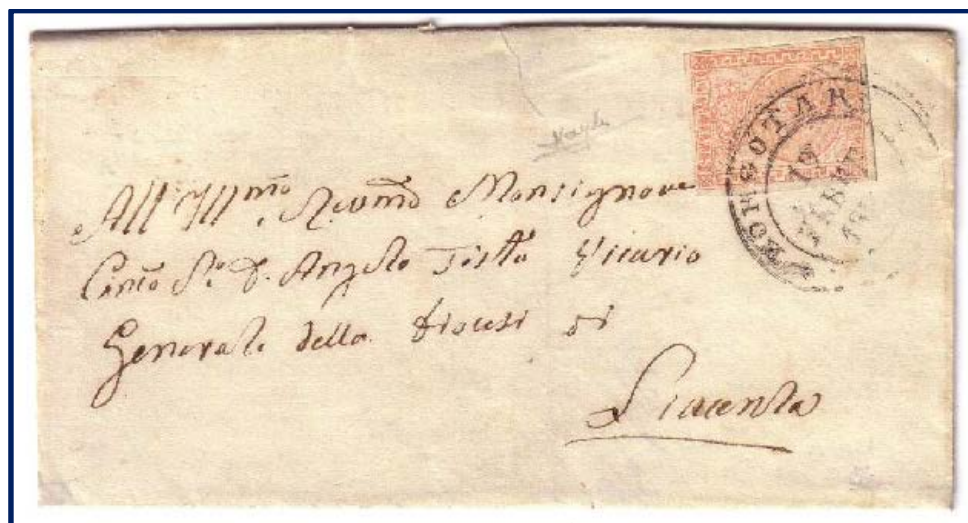 All' Ill.mo Revmo Monsignore
D. Angelo Testa Vicario
Generale della Diocesi di
Piacenza
BORGOTARO
FEBB